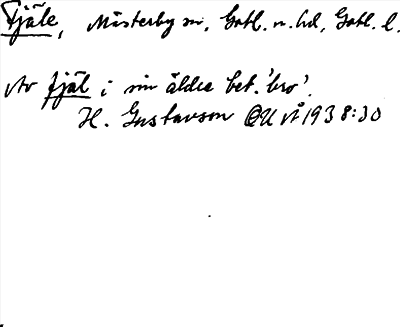 Fjäle, Mästerby sn, Gotl. n. hd, Gotl. l.
Av fjäl i sin äldre bet. 'bro'.
H. Gustavson OUÅ 1938:30